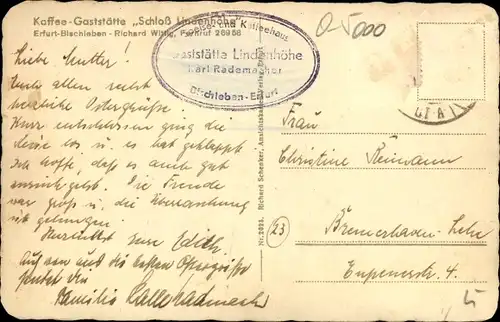 Kaffee-Gaststätte „Schloß Lindenhöhe"
Erfurt-Bischleben - Richard Wittig, Fernruf 26958
Kaffeehaus
Gaststätte Lindenhöhe
Karl Rademacher
Bischleben-Erfurt
0-5000
Liebe Mutter!
Euch allen recht
herzliche Ostergrüße!
Kurz entschlossen ging die
Reise los u. es hat geklappt
Ich hoffe, daß es auch gut
zurück geht. Die Freude
war groß u. die Überraschung
ist gelungen.
Herzlichst Eure Edith.
Auch von uns die besten Ostergrüße
sendet die
Familie Karl Rademacher
Nr. 2023. Richard Schenker, Ansichtskarten-Verlag, Erfurt
Frau
Christine Reimann
23
Bremerhaven-Lehe
Eupenerstr. 4.